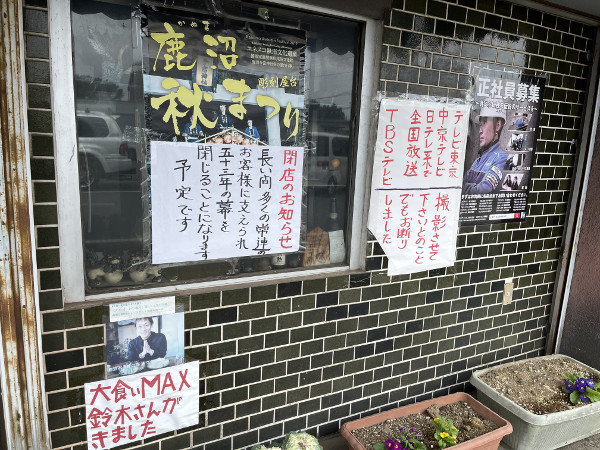 鹿沼
秋まつり
彫刻屋台
閉店のお知らせ
長い間多くの常連の
お客様に支えられ
五十三年の幕を
閉じることになります
予定です
テレビ東京
中京テレビ
日テレ系で
全国放送
TBSテレビ
撮影させて
下さいとのこと
でもお断り
しました
正社員募集
大食いMAX
鈴木さんが
きました